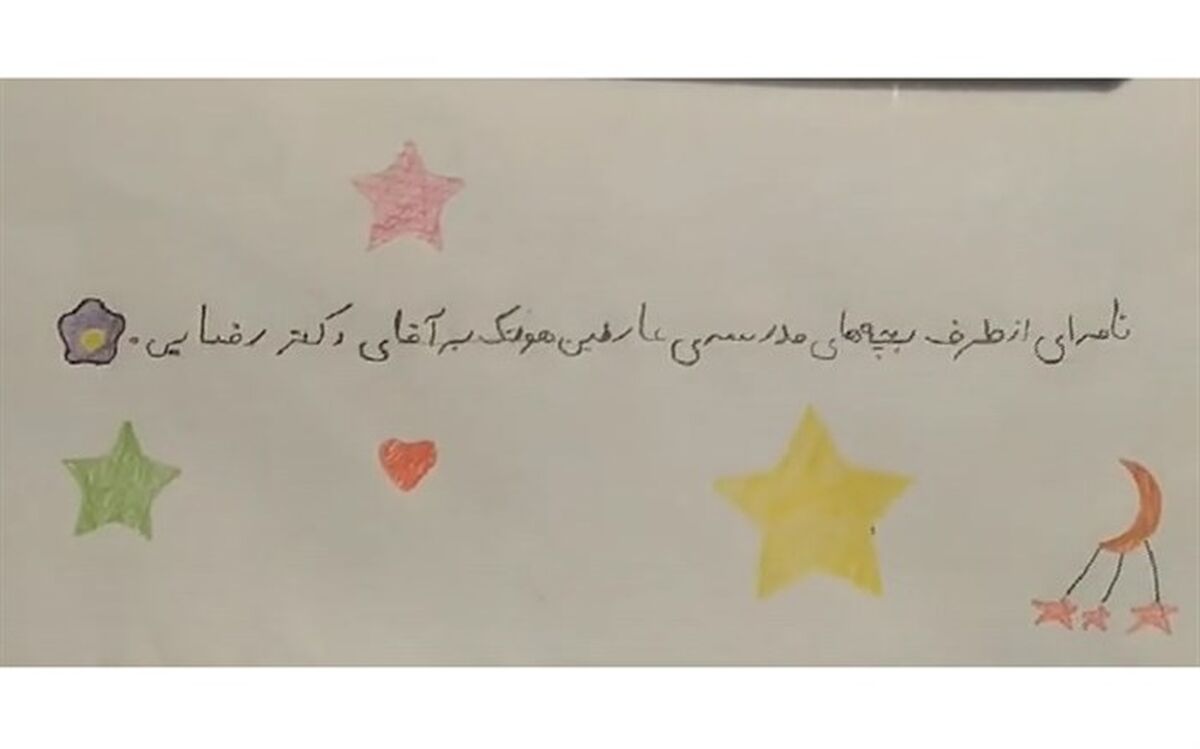 نامه‌ای از طرف بچه‌های مدرسه‌ی عارفین هوتک به آقای دکتر رضایی.